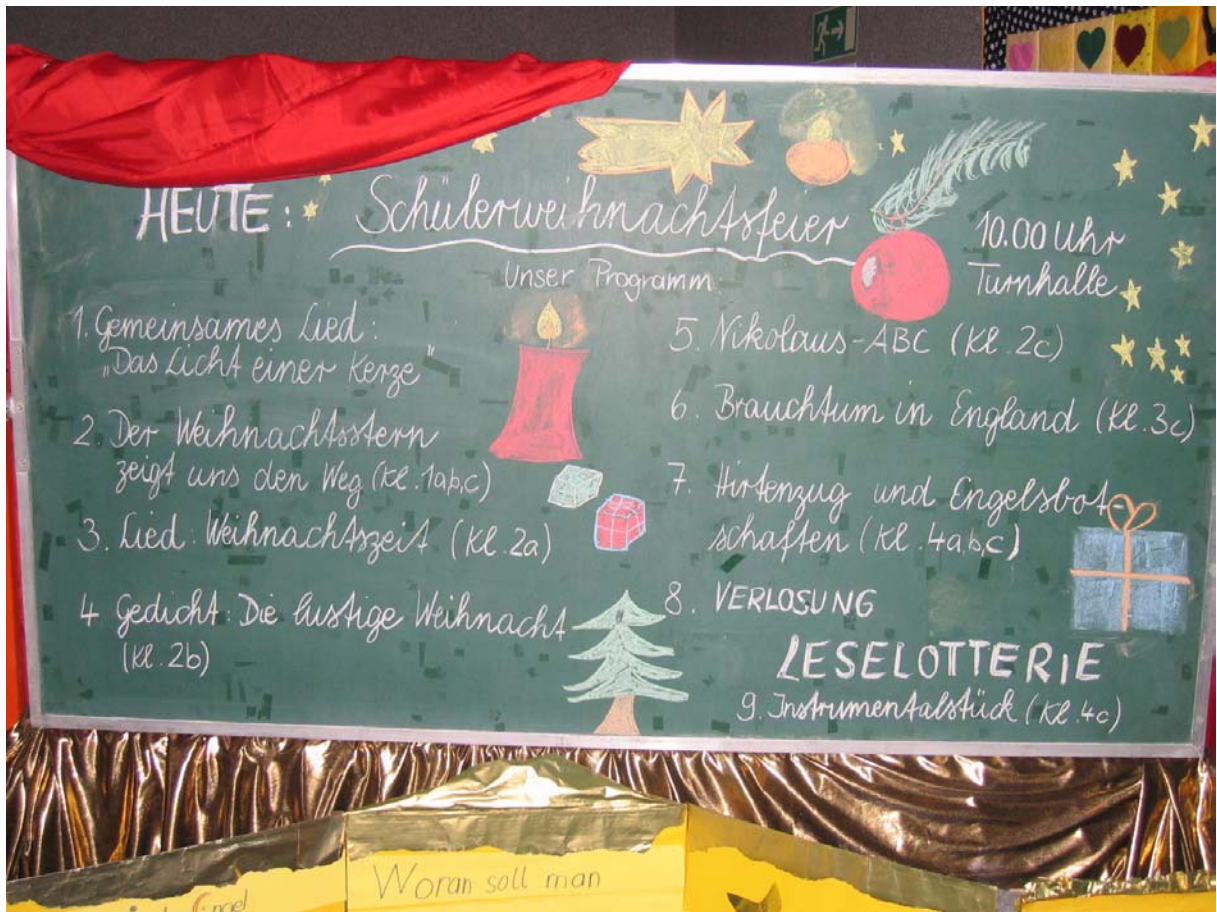 HEUTE: Schülerweihnachtsfeier
10.00 Uhr
Turnhalle
Unser Programm
1. Gemeinsames Lied:
„Das Licht einer Kerze“
2. Der Weihnachtsstern
zeigt uns den Weg (Kl. 1a,b,c)
3. Lied: Weihnachtszeit (Kl. 2a)
4 Gedicht: Die lustige Weihnacht
(Kl. 2b)
5. Nikolaus-ABC (Kl. 2c)
6. Brauchtum in England (Kl. 3c)
7. Hirtenzug und Engelsbot-
schaften (Kl. 4a,b,c)
8. VERLOSUNG
LESELOTTERIE
9. Instrumentalstück (Kl. 4c)
Woran soll man